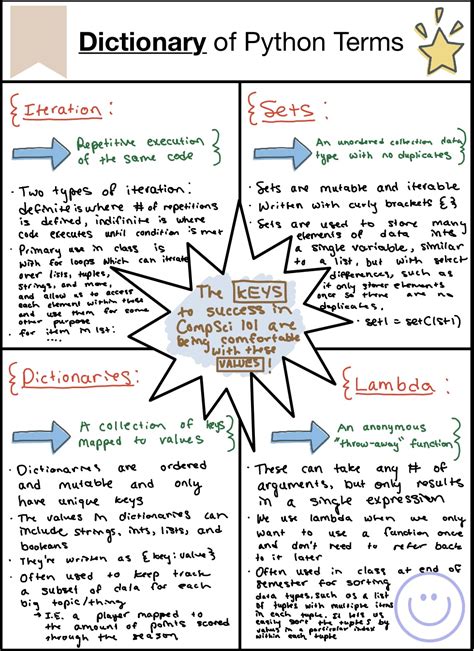 Dictionary of Python Terms
Iteration:
Repetitive execution
of the same code
• Two types of iteration:
definite is where # of repetitions
is defined, indifinite is where
code executes until condition is met
• Primary use in class is
with for loops which can iterate
over lists, tuples,
strings, and more,
and allow us to access
each element within these
and use them for some
other purpose
• for item in lst:
Sets:
An unordered collection data
type with no duplicates
• Sets are mutable and iterable
• Written with curly brackets {}
• Sets are used to store many
elements of data into
a single variable, similar
to a list, but with select
differences, such as
it only stores elements
once so there are no
duplicates.
• set1 = set(lst1)
The KEYS
to success in
CompSci 101 are
being comfortable
with these
VALUES!
Dictionaries:
A collection of keys
mapped to values
• Dictionaries are ordered
and mutable and only
have unique keys
• The values in dictionaries can
include strings, ints, lists, and
booleans
• They're written as {key:value}
• Often used to keep track
a subset of data for each
big topic/thing
→ I.E. a player mapped to
the amount of points scored
through the season
Lambda:
An anonymous
"throw-away" function
• These can take any # of
arguments, but only results
in a single expression
• We use lambda when we only
want to use a function once
and don't need to refer back
to it later
• Often used in class at end of
semester for sorting
data types, such as a list
of tuples with multiple items
in each tuple. It lets us
easily sort the tuples by
values in a particular index
within each tuple